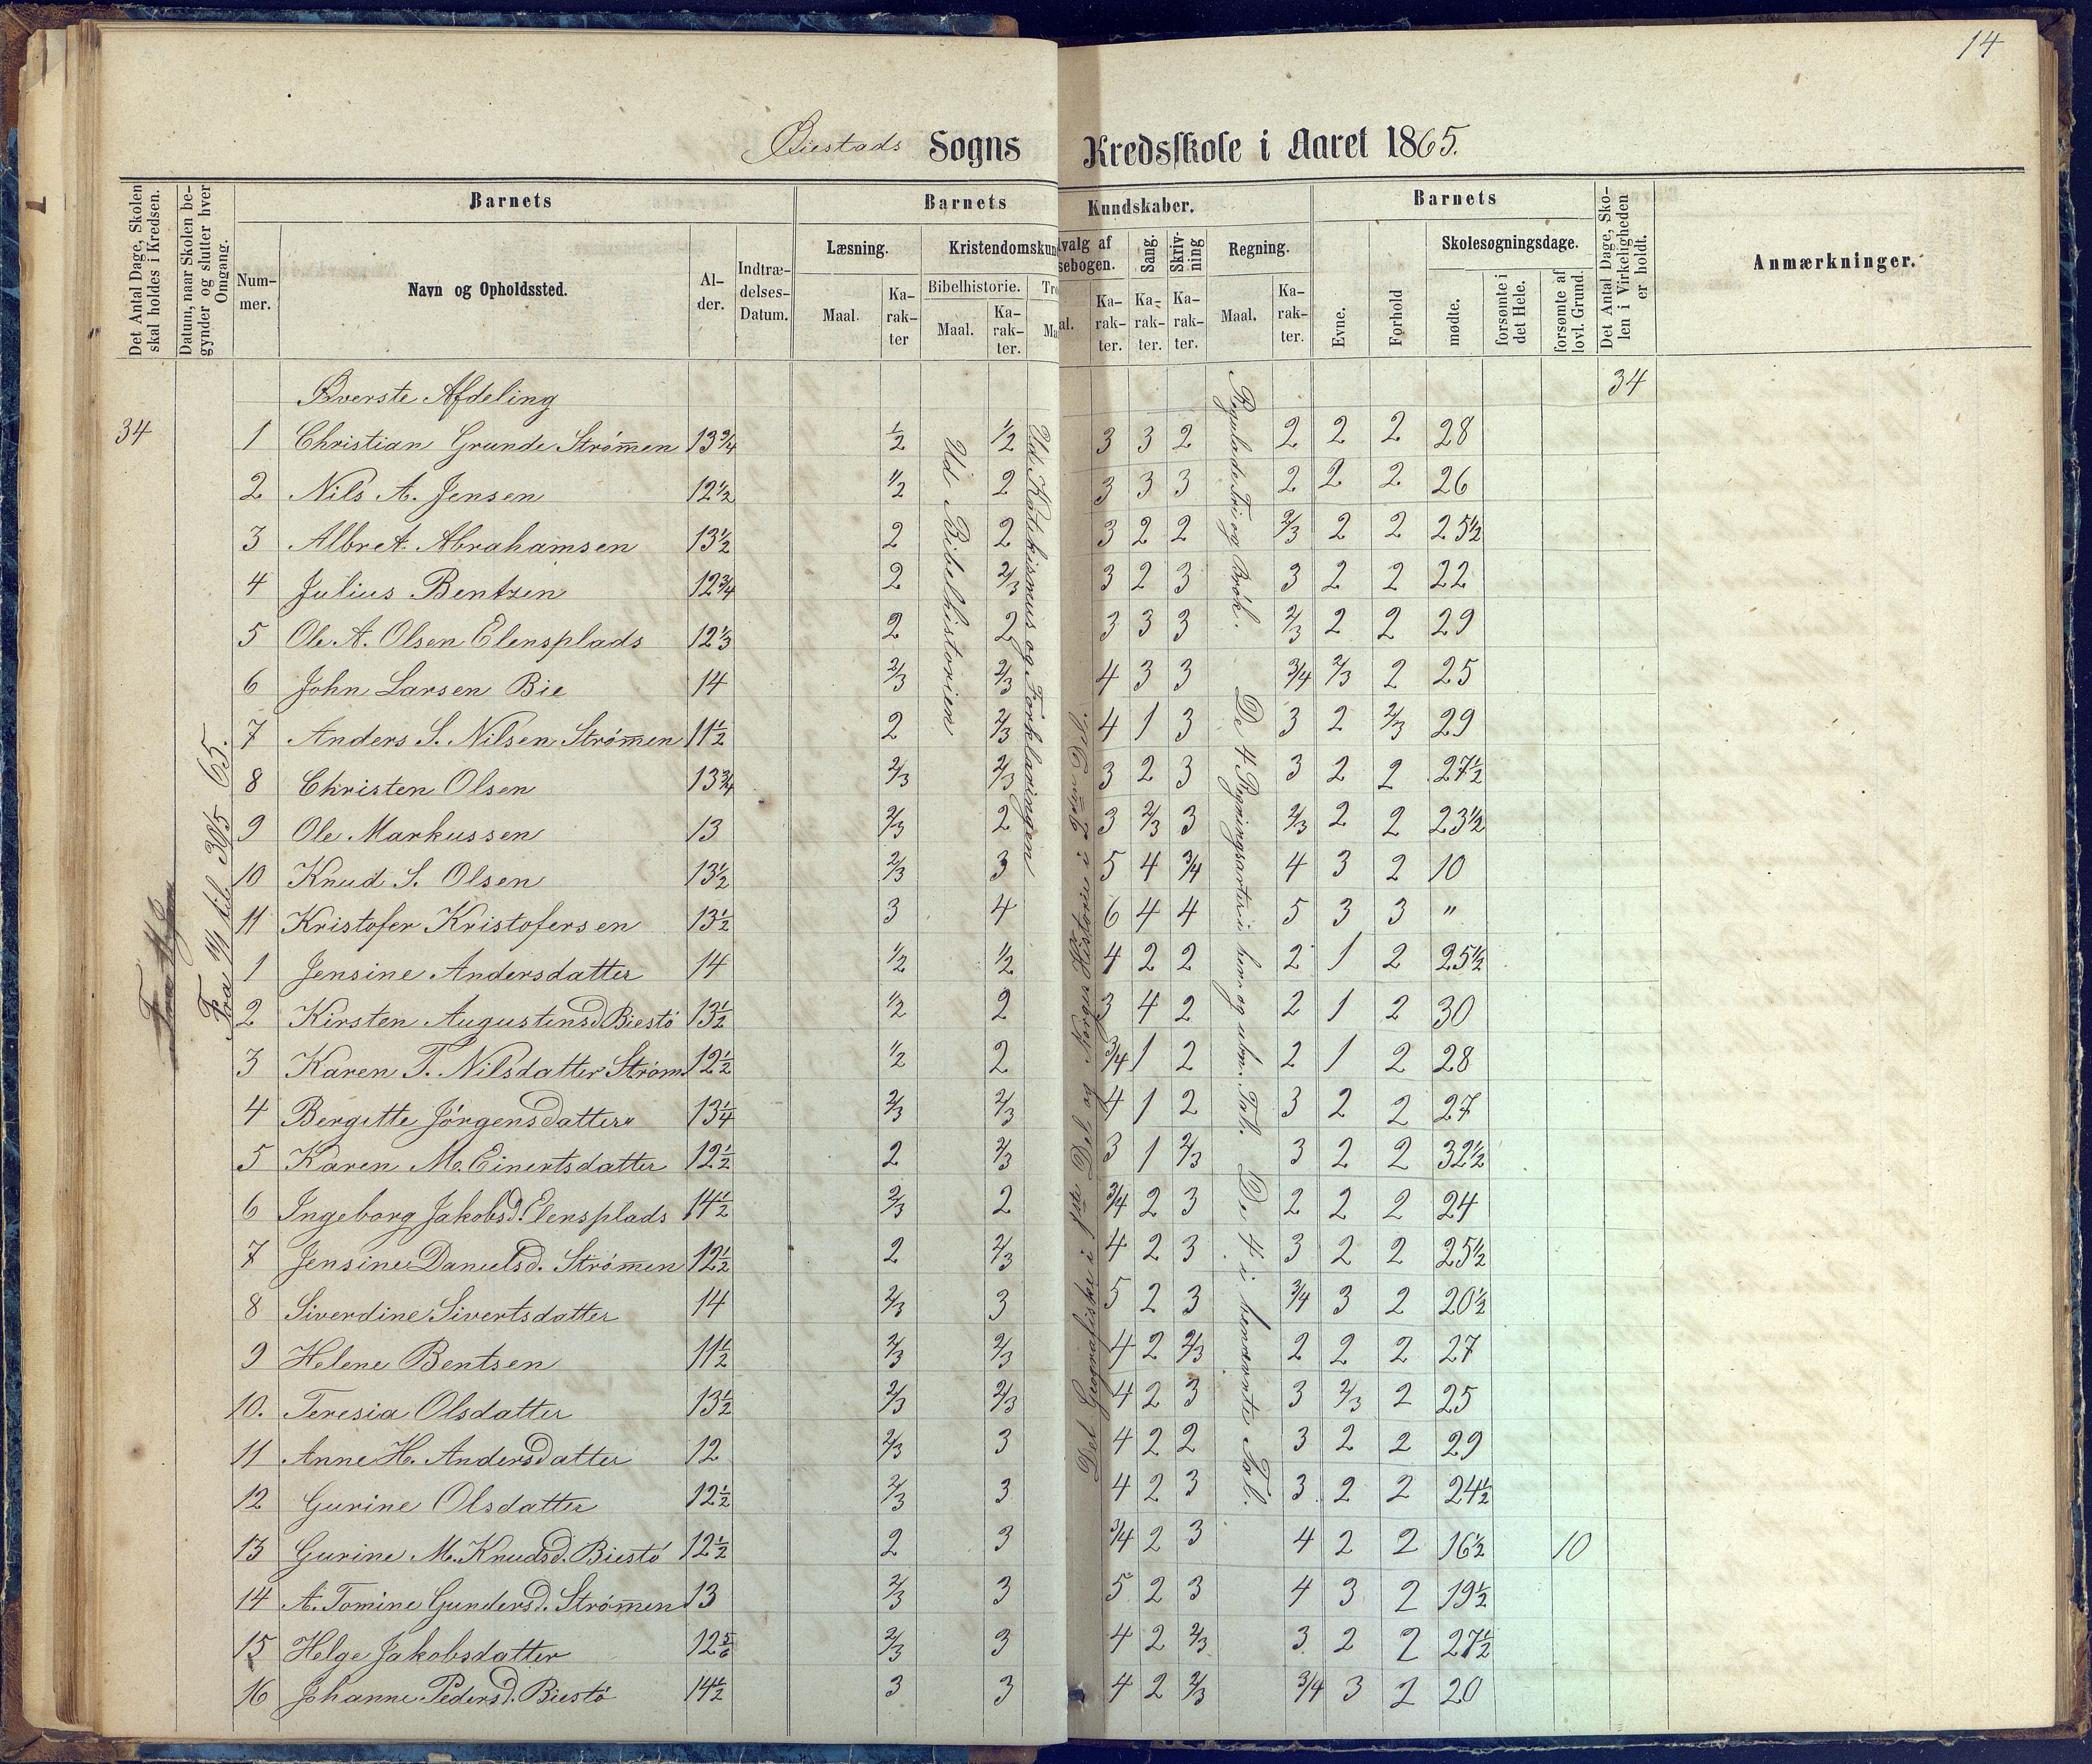 14
Biestads Sogns Kredsskole i Aaret 1865.
Det Antal Dage, Skolen skal holdes i Kredsen.
Datum, naar Skolen begynder og slutter hver Omgang.
Barnets
Nummer.
Navn og Opholdssted.
Alder.
Indtrædelses-Datum.
Barnets
Kundskaber.
Læsning.
Maal.
Karakter
Kristendomskun
Bibelhistorie.
Maal.
Karakter.
Tro
Ma
dvalg af
sebogen.
al.
Karakter.
Sang.
Karakter.
Skrivning
Karakter.
Regning.
Maal.
Karakter.
Barnets
Evne.
Forhold
Skolesøgningsdage.
mødte.
forsømte i det Hele.
forsømte af lovl. Grund.
Det Antal Dage, Skolen i Virkeligheden er holdt.
Anmærkninger.
Øverste Afdeling 34
34
Fra 14/1 til 30/5 65.
Ud Bibelhistorien
Ud Katekismus og Forklaringen
Det Geografiske i 1ste Del og Norges Historie i 2den Del.
Regulade Tri og Brøk. De 4 Regningsarter i hen og uben. Tal. De 4 i benævnte Tal.
1 Christian Grunde Strømmen 13 3/4 1/2 1/2 3 3 2 2 2 2 28
2 Nils A. Jensen 12 1/2 1/2 2 3 3 3 2 2 2 26
3 Albret Abrahamsen 13 1/2 2 2 3 2 2 2/3 2 2 25 1/2
4 Julius Bentzen 12 3/4 2 2/3 3 2 3 3 2 2 22
5 Ole A. Olsen Elensplads 12 1/3 2 2 3 3 3 2/3 2 2 29
6 John Larsen Bie 14 2/3 2/3 4 3 3 3/4 2/3 2 25
7 Anders S. Nilsen Strømmen 11 1/2 2 2/3 4 1 3 3 2 2/3 29
8 Christen Olsen 13 3/4 2/3 2/3 3 2 3 3 2 2 27 1/2
9 Ole Markussen 13 2/3 2 3 2/3 3 2/3 2 2 23 1/2
10 Knud S. Olsen 13 1/2 2/3 3 5 4 3/4 4 3 2 10
11 Kristofer Kristofersen 13 1/2 3 4 6 4 4 5 3 3 "
1 Jensine Andersdatter 14 1/2 1/2 4 2 2 2 1 2 25 1/2
2 Kirsten Augustinsd. Biestø 13 1/2 1/2 2 3 4 2 2 1 2 30
3 Karen T. Nilsdatter Strøm 12 1/2 1/2 2 3/4 1 2 2 1 2 28
4 Bergitte Jørgensdatter 13 1/4 2/3 2/3 4 1 2 3 2 2 27
5 Karen M. Einertsdatter 12 1/2 2 2/3 3 1 2/3 3 2 2 32 1/2
6 Ingeborg Jakobsd. Elensplads 14 1/2 2/3 2 3/4 2 3 2 2 2 24
7 Jensine Danielsd. Strømmen 12 1/2 2 2/3 4 2 3 3 2 2 25 1/2
8 Siverdine Sivertsdatter 14 2/3 3 5 2 3 3/4 3 2 20 1/2
9 Helene Bentsen 11 1/2 2/3 2/3 4 2 2/3 2 2 2 27
10. Teresia Olsdatter 13 1/2 2/3 2/3 4 2 3 3 2/3 2 25
11 Anne H. Andersdatter 12 2/3 3 4 2 2 3 2 2 29
12 Gurine Olsdatter 12 1/2 2/3 3 4 2 3 3 2 2 24 1/2
13 Gurine M. Knudsd. Biestø 12 1/2 2 3 3/4 2 3 4 2 2 16 1/2 10
14 A. Tomine Gundersd. Strømmen 13 2/3 3 5 2 3 4 3 2 19 1/2
15 Helge Jakobsdatter 12 5/6 2/3 3 4 2 2/3 3 2 2 27 1/2
16 Johanne Pedersd. Biestø 14 1/2 3 3 4 2 2/3 3/4 3 2 20